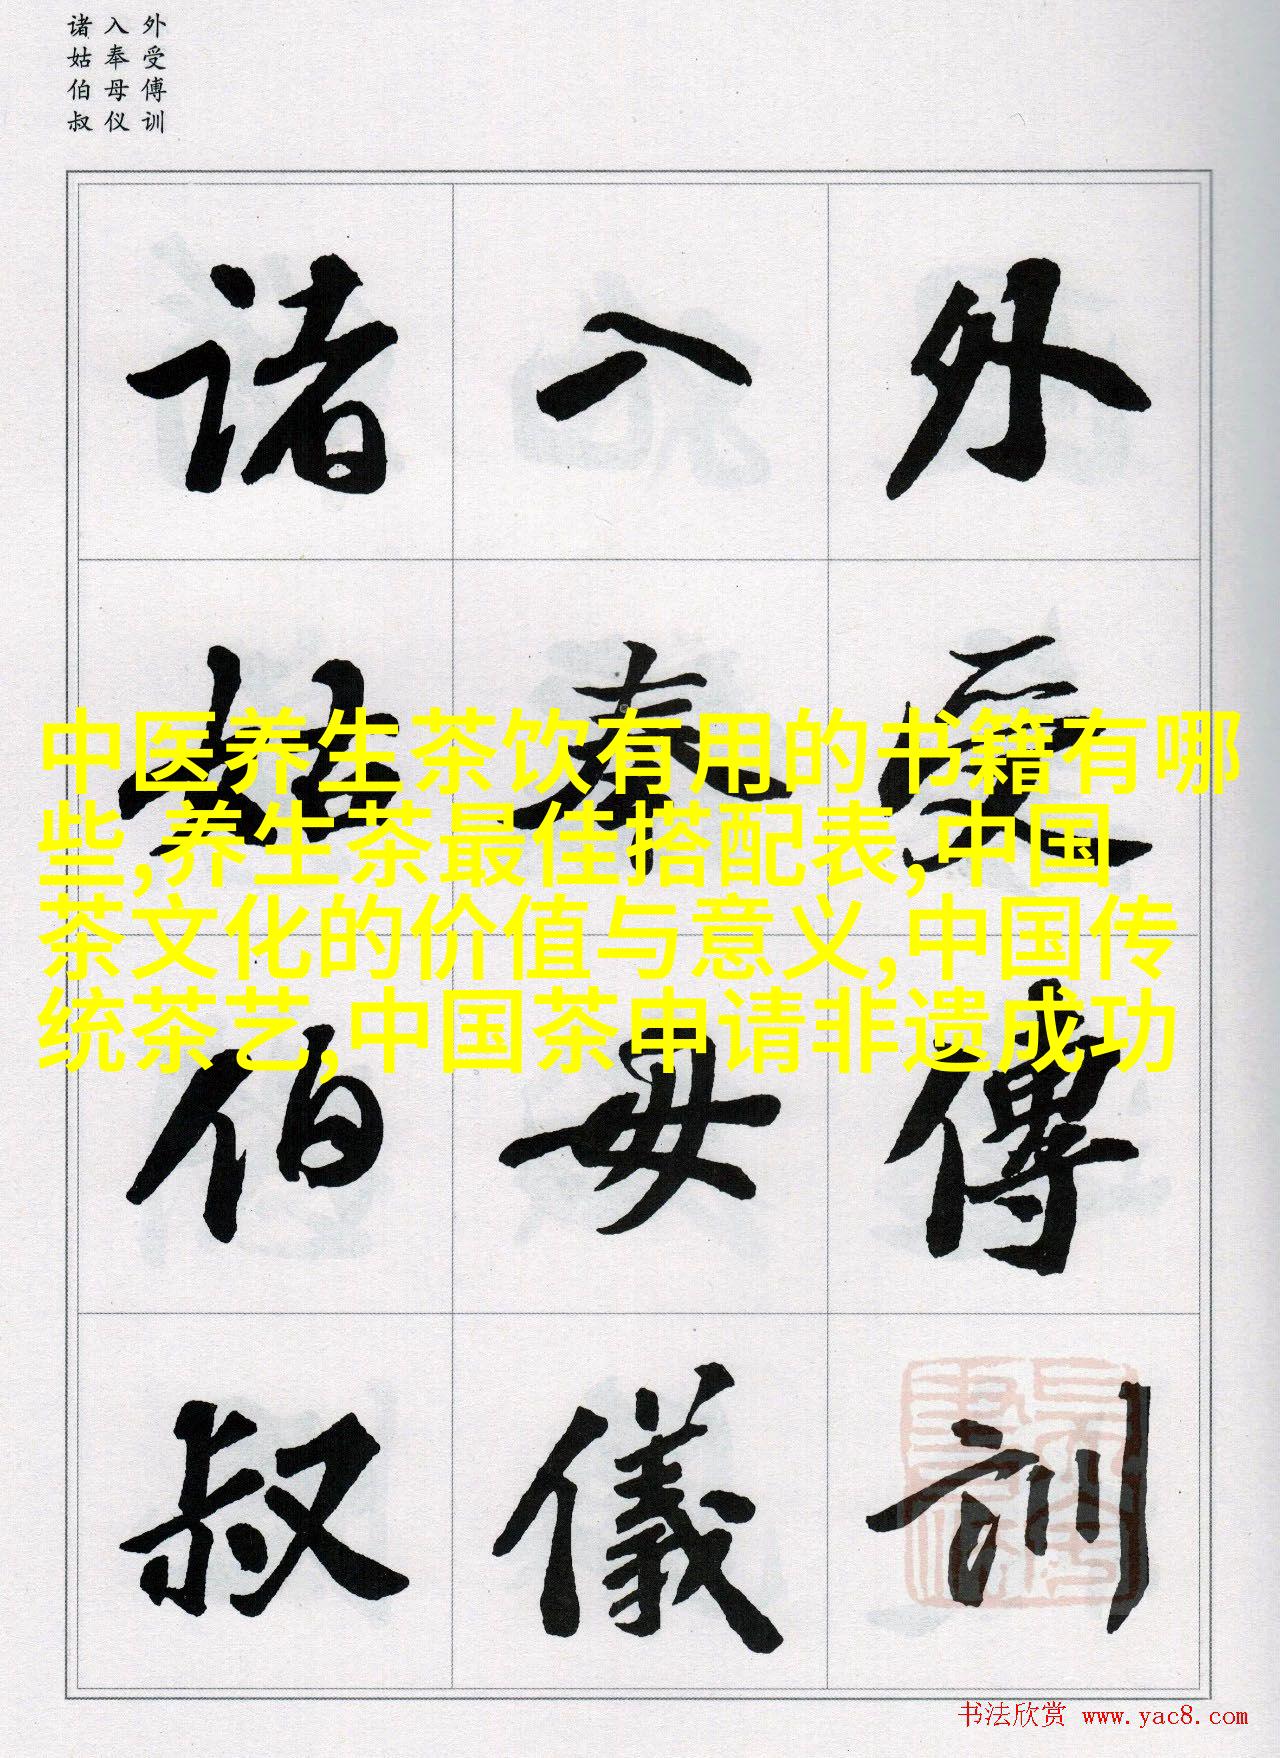 外受傅训
入奉母仪
诸姑伯叔
外受傅訓
入奉母儀
诸姑伯叔
中医养生茶饮有用的书籍有哪
些,养生茶最佳搭配表,中国
茶文化的价值与意义,中国传
统茶艺,中国茶申请非遗成功
书法欣赏 www.yac8.com